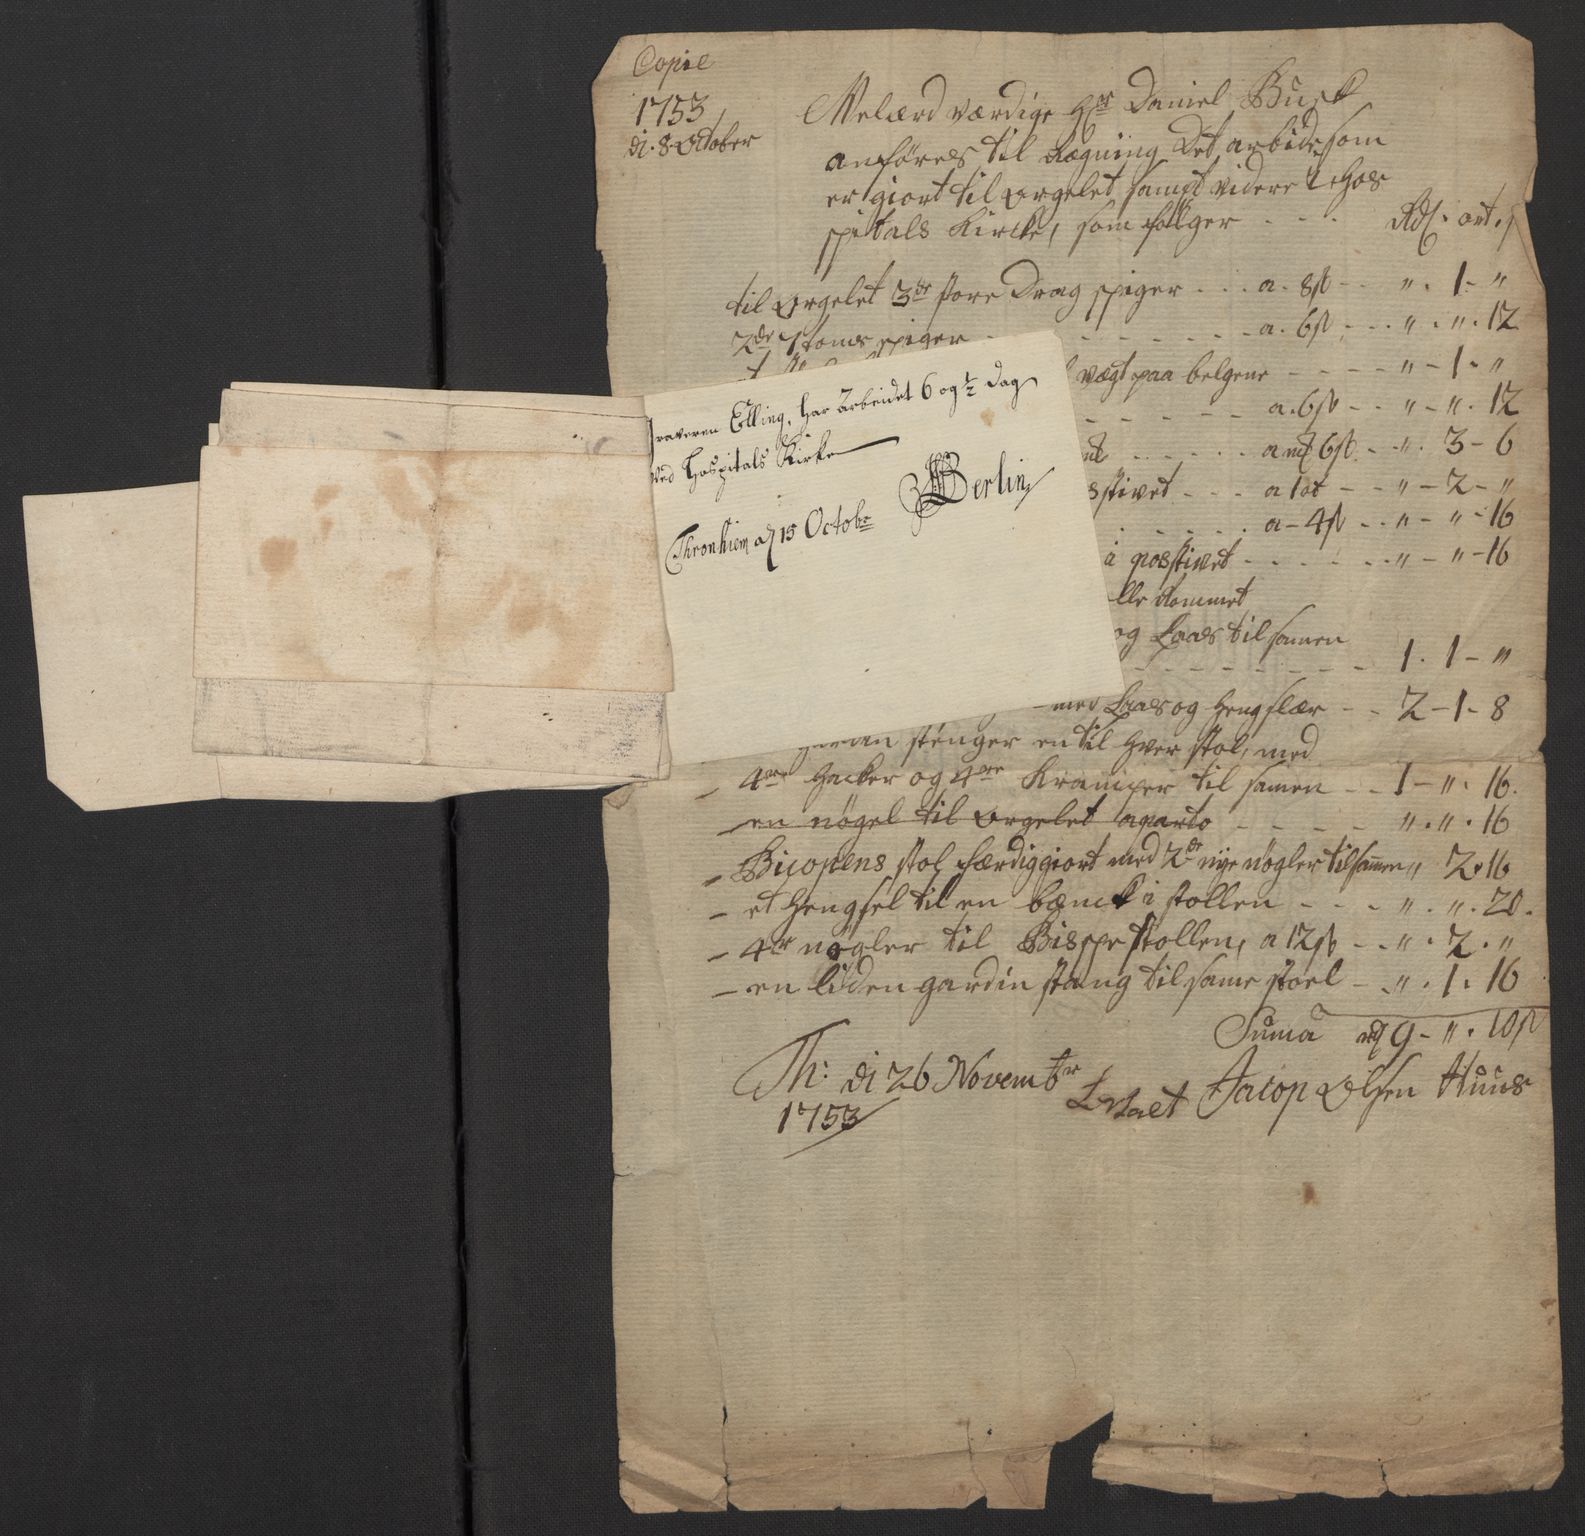 Copie
1753
di. 8 October
Velærd værdige Hr Daniel Busk
anføres til Rægning Det arbide som
er giort til orgelet sampt videre i Hos
spitals Kircke, som følger - - - Rdl. ort. s
til orgelet 3de store Drag spiger - - - a. 8s - - ". 1 - "
2de spiger - - - a. 6s - - - " . " . 12
vægt paa belgene - - - - " - 1 - "
a. 6s - - " - " . 12
- - - - - a 6s - - " . 3 - 6
sstivet - - - a 1 ort - - " - 2 - "
- - - a - 4s - - " - " - 16
i posstivet - - - - - - " - " - 16
og Laas til samen
- - - - - - - - - 1 . 1 - "
med Laas og Hengslær - - 2 - 1 - 8
stenger en til hver stol, med
- 4re Hacker og 4re Kramper til samen - - 1 - " . 16.
- en nøgel til orgelet aparto - - - - " . " . 16
- Bisopens stol færdiggiort med 2de nye nøgler tilsamen " 2 . 16
- et Hengsel til en bænck i stollen - - - " . " . 20.
- 4re nøgler til Bispe stollen, a 12s - - " . 2 . "
- en liden gardin stang til same stoel - - " . 1 . 16
Suma rd 9 - " . 10s
Th: di 26 Novembr
1753
Jacop Olsen Huus
Graveren Elling, har arbeidet 6 og ½ Dag
Ved Hospitals Kirke
Thronhiem d 15 Octobr
Berlin